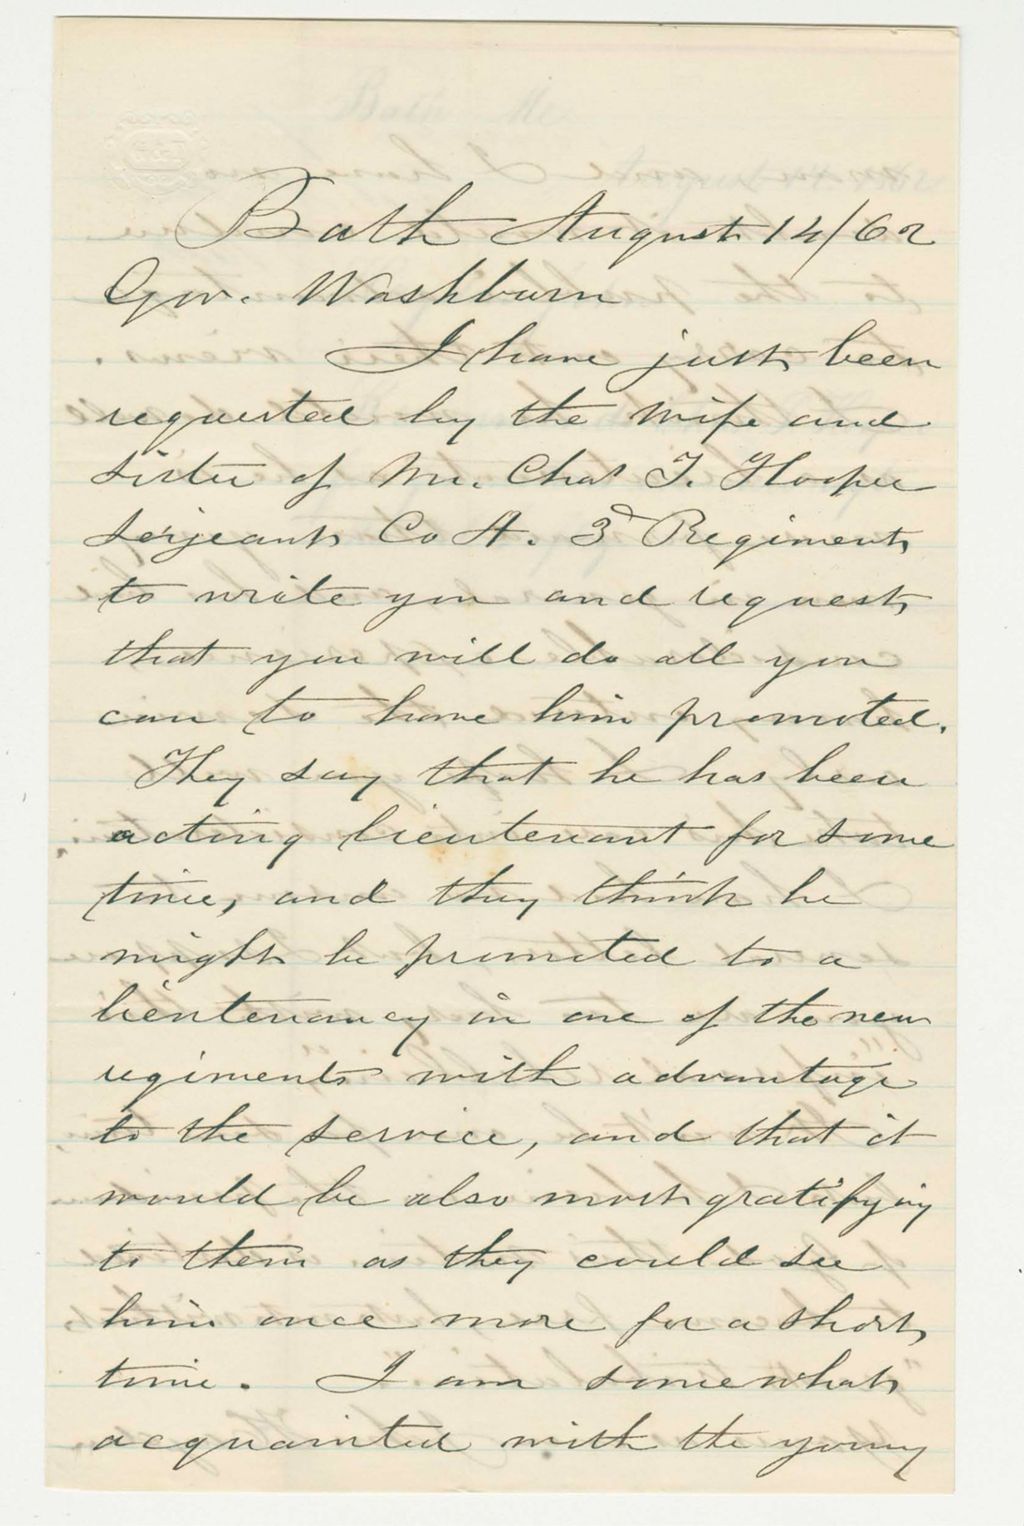 Bath August 14/62
Gov. Washburn
I have just been
requested by the wife and
sister of Mr. Chas T. Hooper
serjeant Co A. 3d Regiment
to write you and request
that you will do all you
can to have him promoted.
They say that he has been
acting lieutenant for some
time, and they think he
might be promoted to a
lieutenancy in one of the new
regiments with advantage
to the service, and that it
would be also most gratifying
to them as they could see
him once more for a short
time. I am somewhat
acquainted with the young